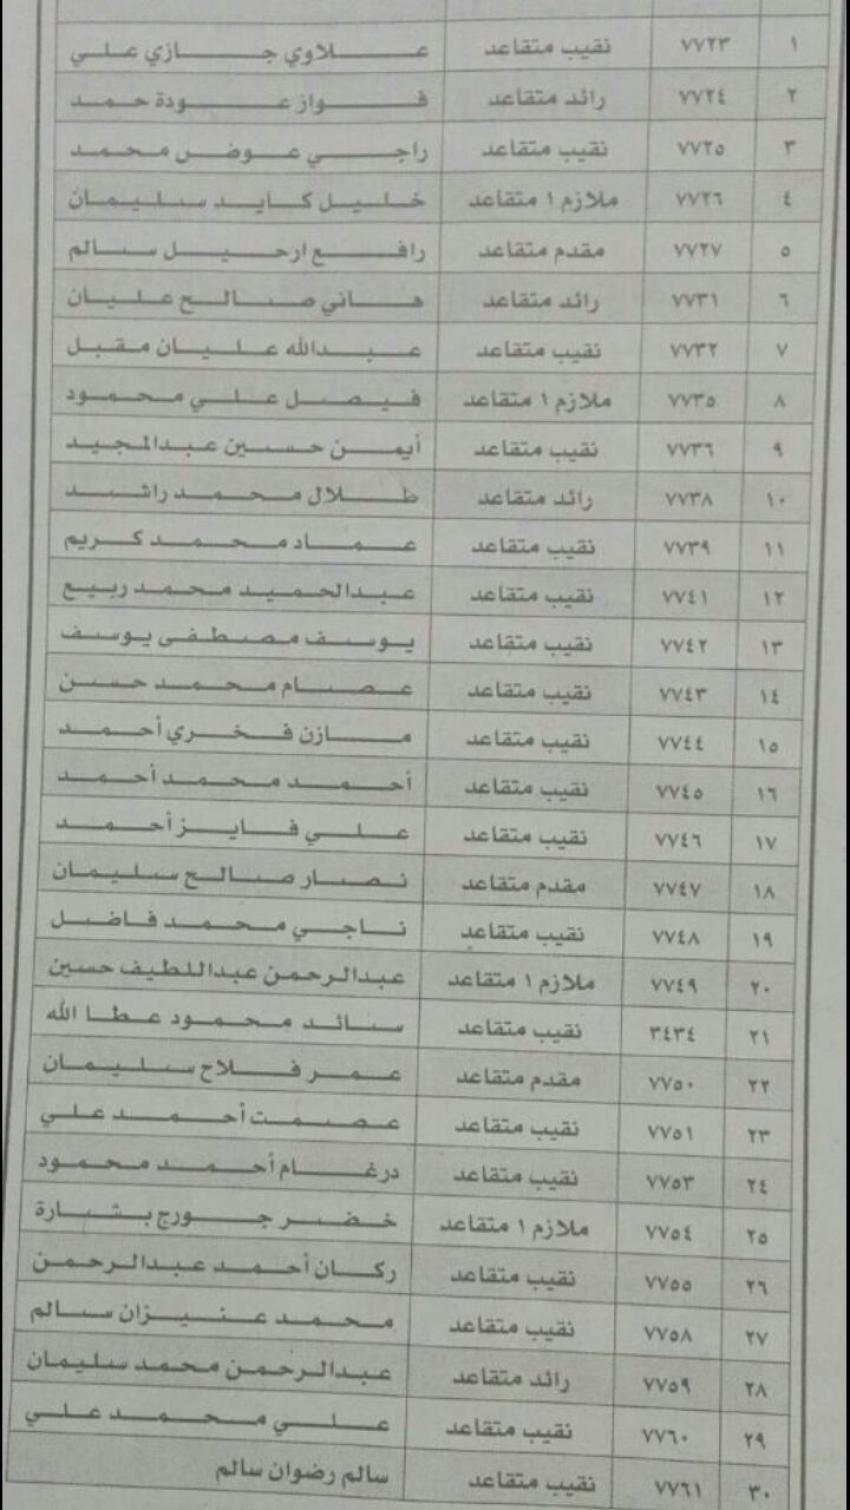 ١ ٧٧٢٣ نقيب متقاعد علاوي جازي علي
٢ ٧٧٢٤ رائد متقاعد فواز عودة حمد
٣ ٧٧٢٥ نقيب متقاعد راجي عوض محمد
٤ ٧٧٢٦ ملازم ١ متقاعد خليل كايد سليمان
٥ ٧٧٢٧ مقدم متقاعد رافع ارحيل سالم
٦ ٧٧٣١ رائد متقاعد هاني صالح عليان
٧ ٧٧٣٢ نقيب متقاعد عبدالله عليان مقبل
٨ ٧٧٣٥ ملازم ١ متقاعد فيصل علي محمود
٩ ٧٧٣٦ نقيب متقاعد أيمن حسين عبدالمجيد
١٠ ٧٧٣٨ رائد متقاعد طلال محمد راشد
١١ ٧٧٣٩ نقيب متقاعد عماد محمد كريم
١٢ ٧٧٤١ نقيب متقاعد عبدالحميد محمد ربيع
١٣ ٧٧٤٢ نقيب متقاعد يوسف مصطفى يوسف
١٤ ٧٧٤٣ نقيب متقاعد عصام محمد حسن
١٥ ٧٧٤٤ نقيب متقاعد مازن فخري أحمد
١٦ ٧٧٤٥ نقيب متقاعد أحمد محمد أحمد
١٧ ٧٧٤٦ نقيب متقاعد علي فايز أحمد
١٨ ٧٧٤٧ مقدم متقاعد نصار صالح سليمان
١٩ ٧٧٤٨ نقيب متقاعد ناجي محمد فاضل
٢٠ ٧٧٤٩ ملازم ١ متقاعد عبدالرحمن عبداللطيف حسين
٢١ ٣٤٣٤ نقيب متقاعد سائد محمود عطا الله
٢٢ ٧٧٥٠ مقدم متقاعد عمر فلاح سليمان
٢٣ ٧٧٥١ نقيب متقاعد عصمت أحمد علي
٢٤ ٧٧٥٣ نقيب متقاعد درغام أحمد محمود
٢٥ ٧٧٥٤ ملازم ١ متقاعد خضر جورج بشارة
٢٦ ٧٧٥٥ نقيب متقاعد ركان أحمد عبدالرحمن
٢٧ ٧٧٥٨ نقيب متقاعد محمد عنيزان سالم
٢٨ ٧٧٥٩ رائد متقاعد عبدالرحمن محمد سليمان
٢٩ ٧٧٦٠ نقيب متقاعد علي محمد علي
٣٠ ٧٧٦١ نقيب متقاعد سالم رضوان سالم